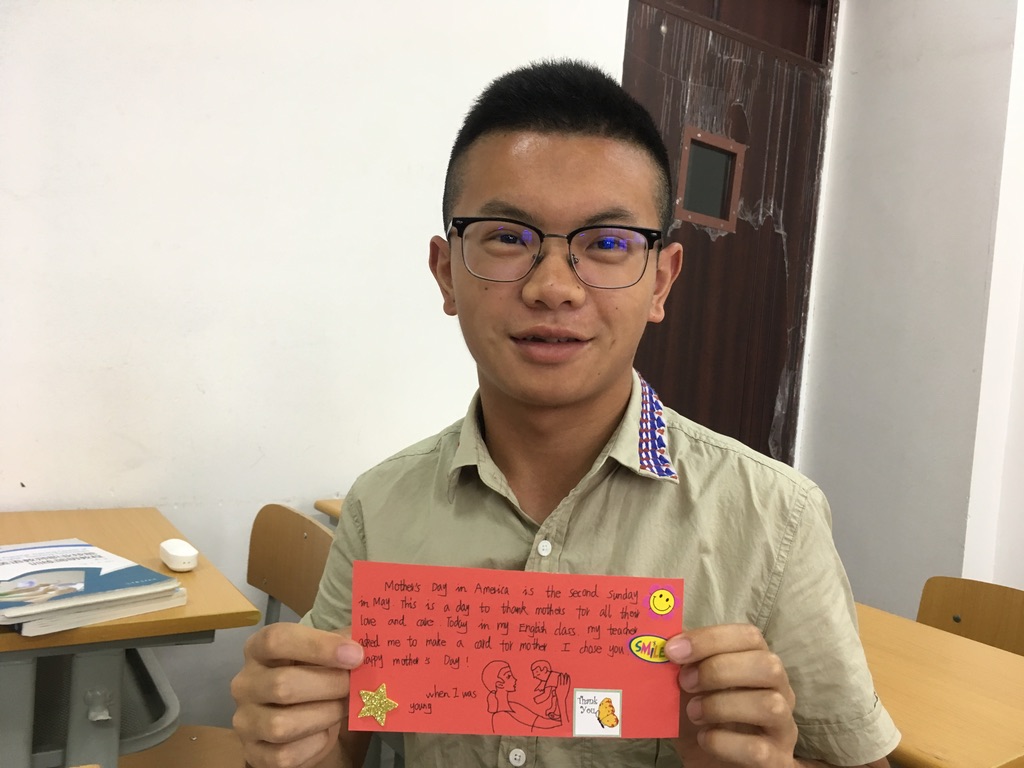 Mother's Day in America is the second Sunday
in May. This is a day to thank mothers for all their
love and care. Today in my English class, my teacher
asked me to make a card for mother. I chose you.
Happy mother's Day!
SMILE
when I was
young
Thank
You